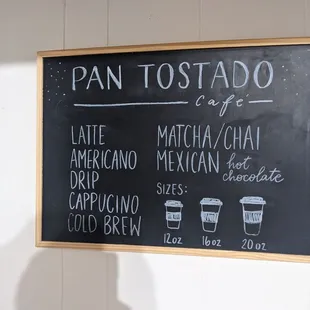 PAN TOSTADO
cafe
LATTE
AMERICANO
DRIP
CAPPUCINO
COLD BREW
MATCHA/CHAI
MEXICAN hot
chocolate
SIZES:
12oz 16oz 20oz